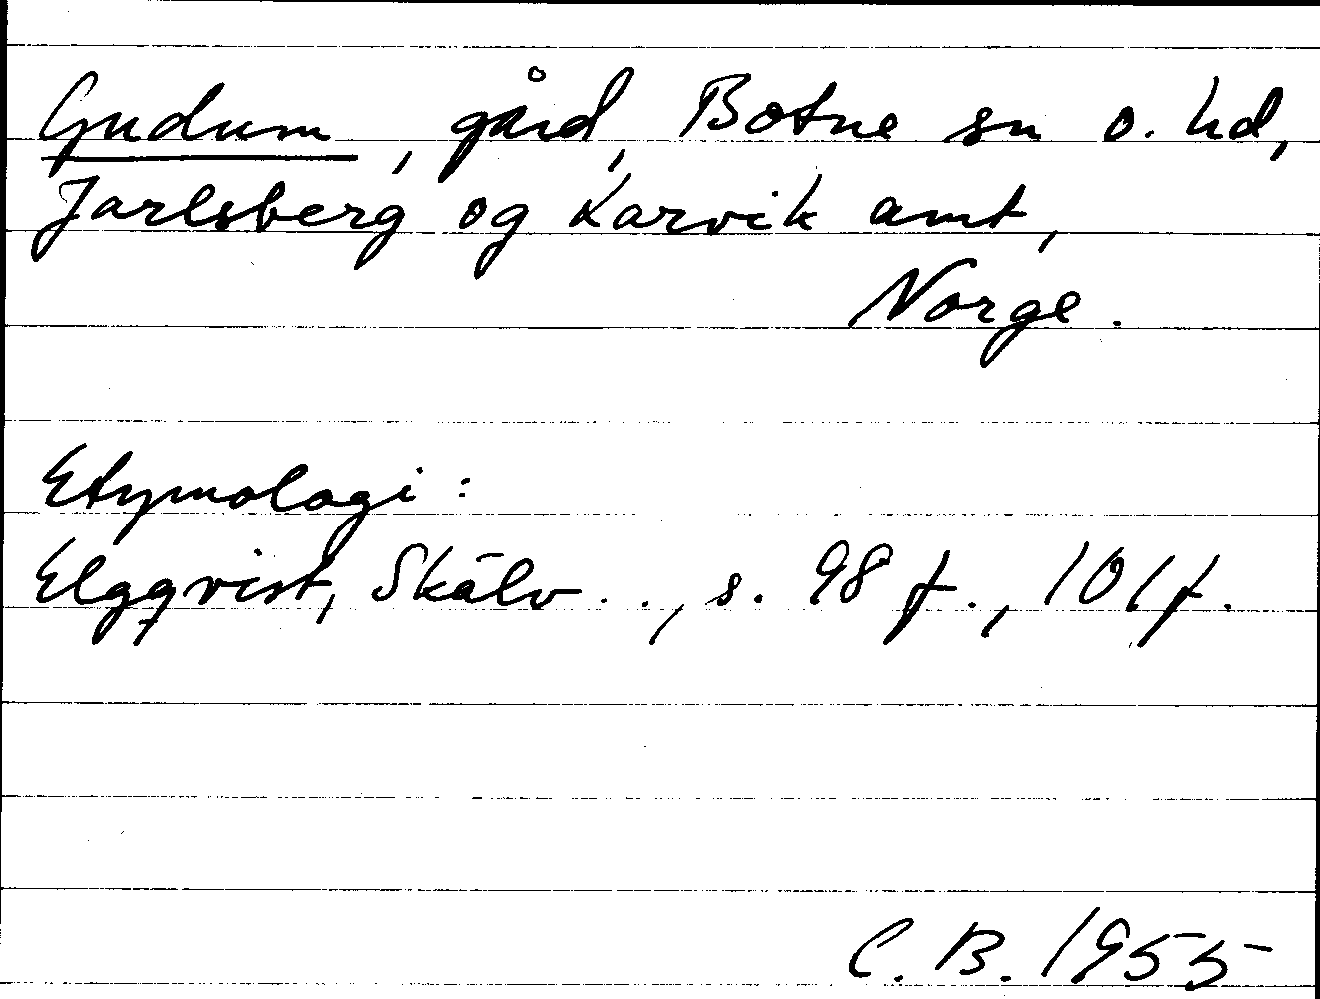 Gudum, gård, Botne sn o. hd,
Jarlsberg og Larvik amt,
Norge.
Etymologi:
Elgqvist, Skälv..., s. 98 f., 101 f.
C. B. 1955